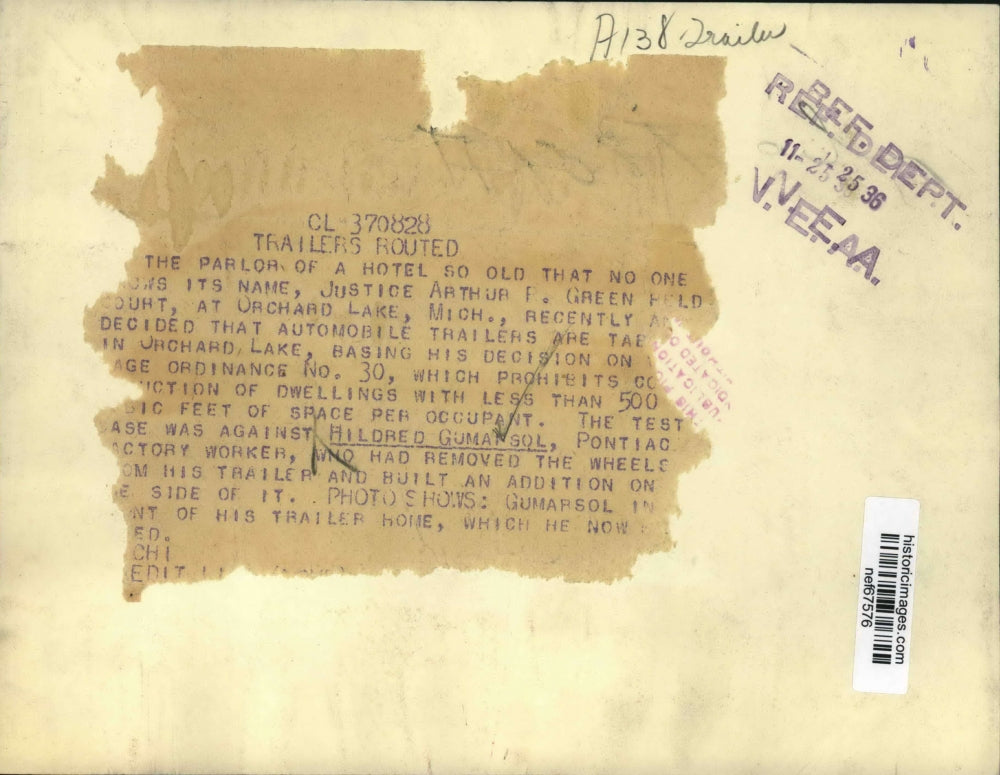 A138 Trailer
REF. DEPT.
REC'D
11-25 36
N.E.A.
CL 370828
TRAILERS ROUTED
THE PARLOR OF A HOTEL SO OLD THAT NO ONE
OWS ITS NAME, JUSTICE ARTHUR F. GREEN HELD
COURT, AT ORCHARD LAKE, MICH., RECENTLY A
DECIDED THAT AUTOMOBILE TRAILERS ARE TAB
IN ORCHARD LAKE, BASING HIS DECISION ON
AGE ORDINANCE NO. 30, WHICH PROHIBITS CO
UCTION OF DWELLINGS WITH LESS THAN 500
BIC FEET OF SPACE PER OCCUPANT. THE TEST
ASE WAS AGAINST HILDRED GUMARSOL, PONTIAC
ACTORY WORKER, WHO HAD REMOVED THE WHEELS
OM HIS TRAILER AND BUILT AN ADDITION ON
E SIDE OF IT. PHOTO SHOWS: GUMARSOL IN
NT OF HIS TRAILER HOME, WHICH HE NOW
ED.
CHI
EDIT
historicimages.com
nef67576